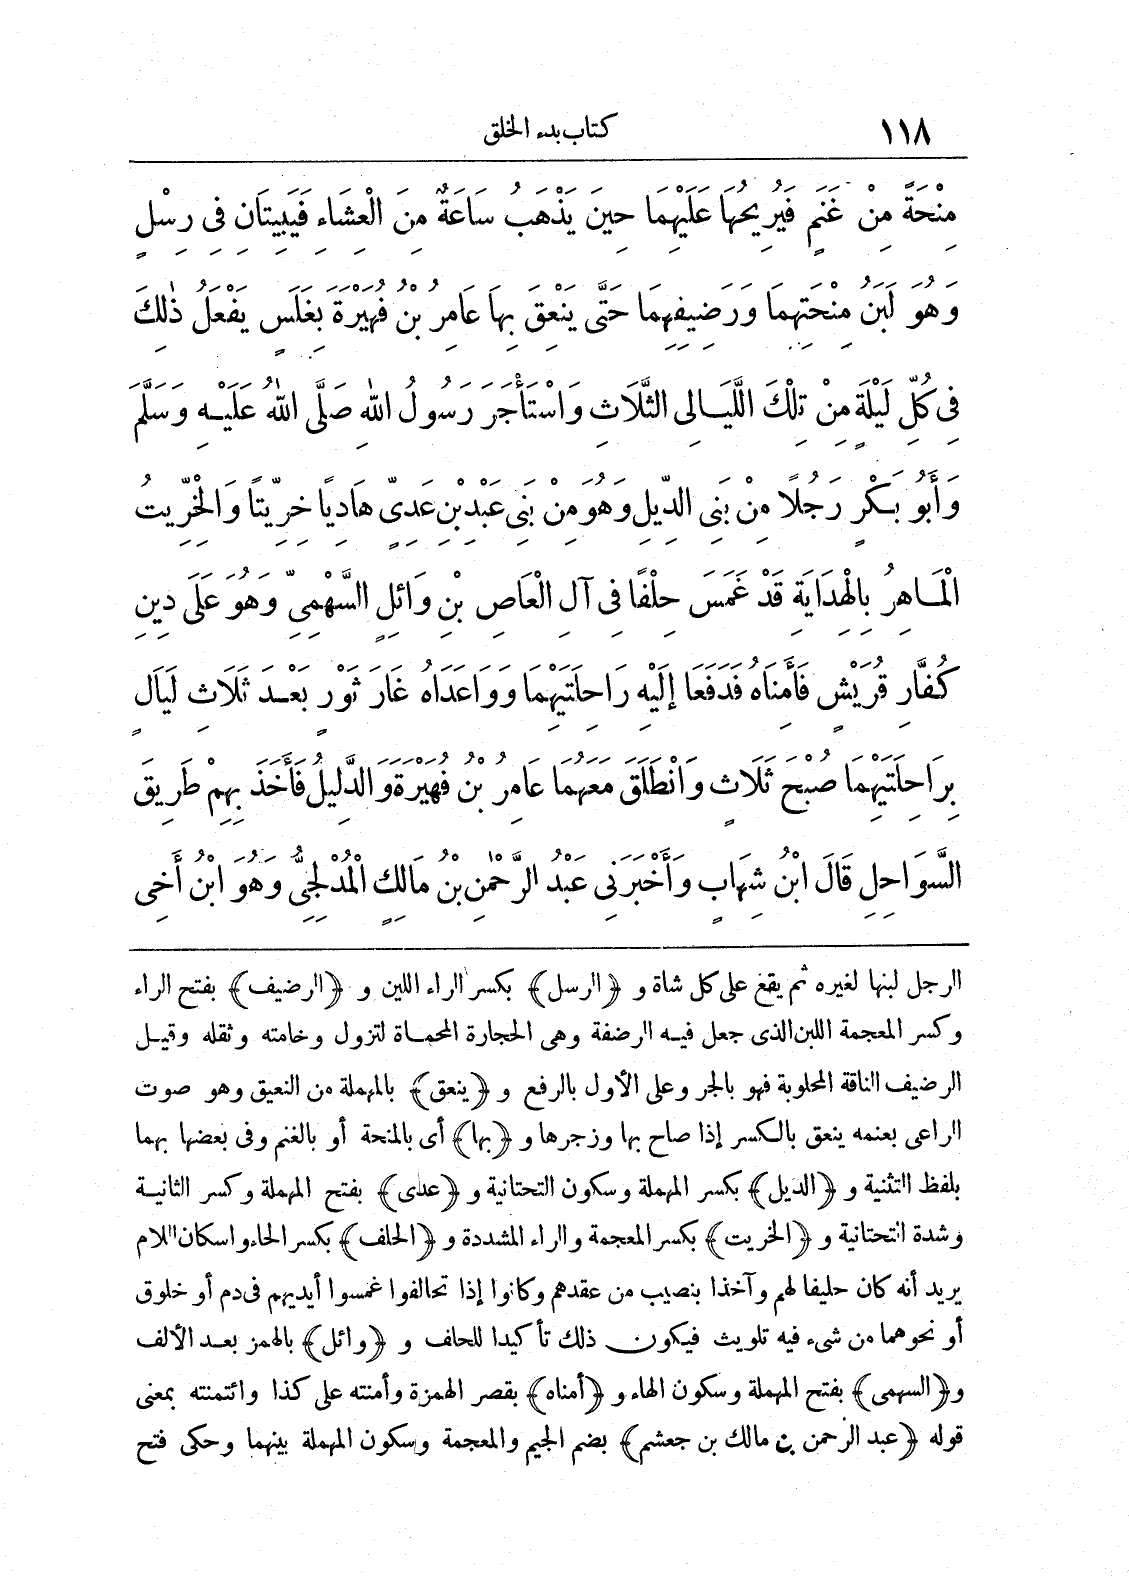 ١١٨ كتاب بدء الخلق
مِنْحَةً مِنْ غَنَمٍ فَيُرِيحُهَا عَلَيْهِمَا حِينَ يَذْهَبُ سَاعَةٌ مِنَ الْعِشَاءِ فَيَبِيتَانِ فِى رِسْلٍ
وَهُوَ لَبَنُ مِنْحَتِهِمَا وَرَضِيفِهِمَا حَتَّى يَنْعِقَ بِهَا عَامِرُ بْنُ فُهَيْرَةَ بِغَلَسٍ يَفْعَلُ ذٰلِكَ
فِى كُلِّ لَيْلَةٍ مِنْ تِلْكَ اللَّيَالِى الثَّلَاثِ وَاسْتَأْجَرَ رَسُولُ اللهِ صَلَّى اللهُ عَلَيْهِ وَسَلَّمَ
وَأَبُو بَكْرٍ رَجُلًا مِنْ بَنِى الدِّيلِ وَهُوَ مِنْ بَنِى عَبْدِ بْنِ عَدِىٍّ هَادِيًا خِرِّيتًا وَالْخِرِّيتُ
الْمَاهِرُ بِالْهِدَايَةِ قَدْ غَمَسَ حِلْفًا فِى آلِ الْعَاصِ بْنِ وَائِلٍ السَّهْمِىِّ وَهُوَ عَلَى دِينِ
كُفَّارِ قُرَيْشٍ فَأَمِنَاهُ فَدَفَعَا إِلَيْهِ رَاحِلَتَيْهِمَا وَوَاعَدَاهُ غَارَ ثَوْرٍ بَعْدَ ثَلَاثِ لَيَالٍ
بِرَاحِلَتَيْهِمَا صُبْحَ ثَلَاثٍ وَانْطَلَقَ مَعَهُمَا عَامِرُ بْنُ فُهَيْرَةَ وَالدَّلِيلُ فَأَخَذَ بِهِمْ طَرِيقَ
السَّوَاحِلِ قَالَ ابْنُ شِهَابٍ وَأَخْبَرَنِى عَبْدُ الرَّحْمٰنِ بْنُ مَالِكٍ الْمُدْلِجِىُّ وَهُوَ ابْنُ أَخِى
الرجل لبنها لغيره ثم يقع على كل شاة و ﴿الرسل﴾ بكسر الراء اللبن و ﴿الرضيف﴾ بفتح الراء
وكسر المعجمة اللبن الذى جعل فيه الرضفة وهى الحجارة المحماة لتزول وخامته وثقله وقيل
الرضيف الناقة المحلوبة فهو بالجر وعلى الأول بالرفع و ﴿ينعق﴾ بالمهملة من النعيق وهو صوت
الراعى بغنمه ينعق بالكسر إذا صاح بها وزجرها و ﴿بها﴾ أى بالمنحة أو بالغنم وفى بعضها بهما
بلفظ التثنية و ﴿الديل﴾ بكسر المهملة وسكون التحتانية و ﴿عدى﴾ بفتح المهملة وكسر الثانية
وشدة التحتانية و ﴿الخريت﴾ بكسر المعجمة والراء المشددة و ﴿الحلف﴾ بكسر الحاء واسكان اللام
يريد أنه كان حليفا لهم وآخذا بنصيب من عقدهم وكانوا إذا تحالفوا غمسوا أيديهم فى دم أو خلوق
أو نحوهما من شىء فيه تلويث فيكون ذلك تأكيدا للحلف و ﴿وائل﴾ بالهمز بعد الألف
و﴿السهمى﴾ بفتح المهملة وسكون الهاء و ﴿أمناه﴾ بقصر الهمزة وأمنته على كذا وائتمنته بمعنى
قوله ﴿عبد الرحمن بن مالك بن جعشم﴾ بضم الجيم والمعجمة وسكون المهملة بينهما وحكى فتح